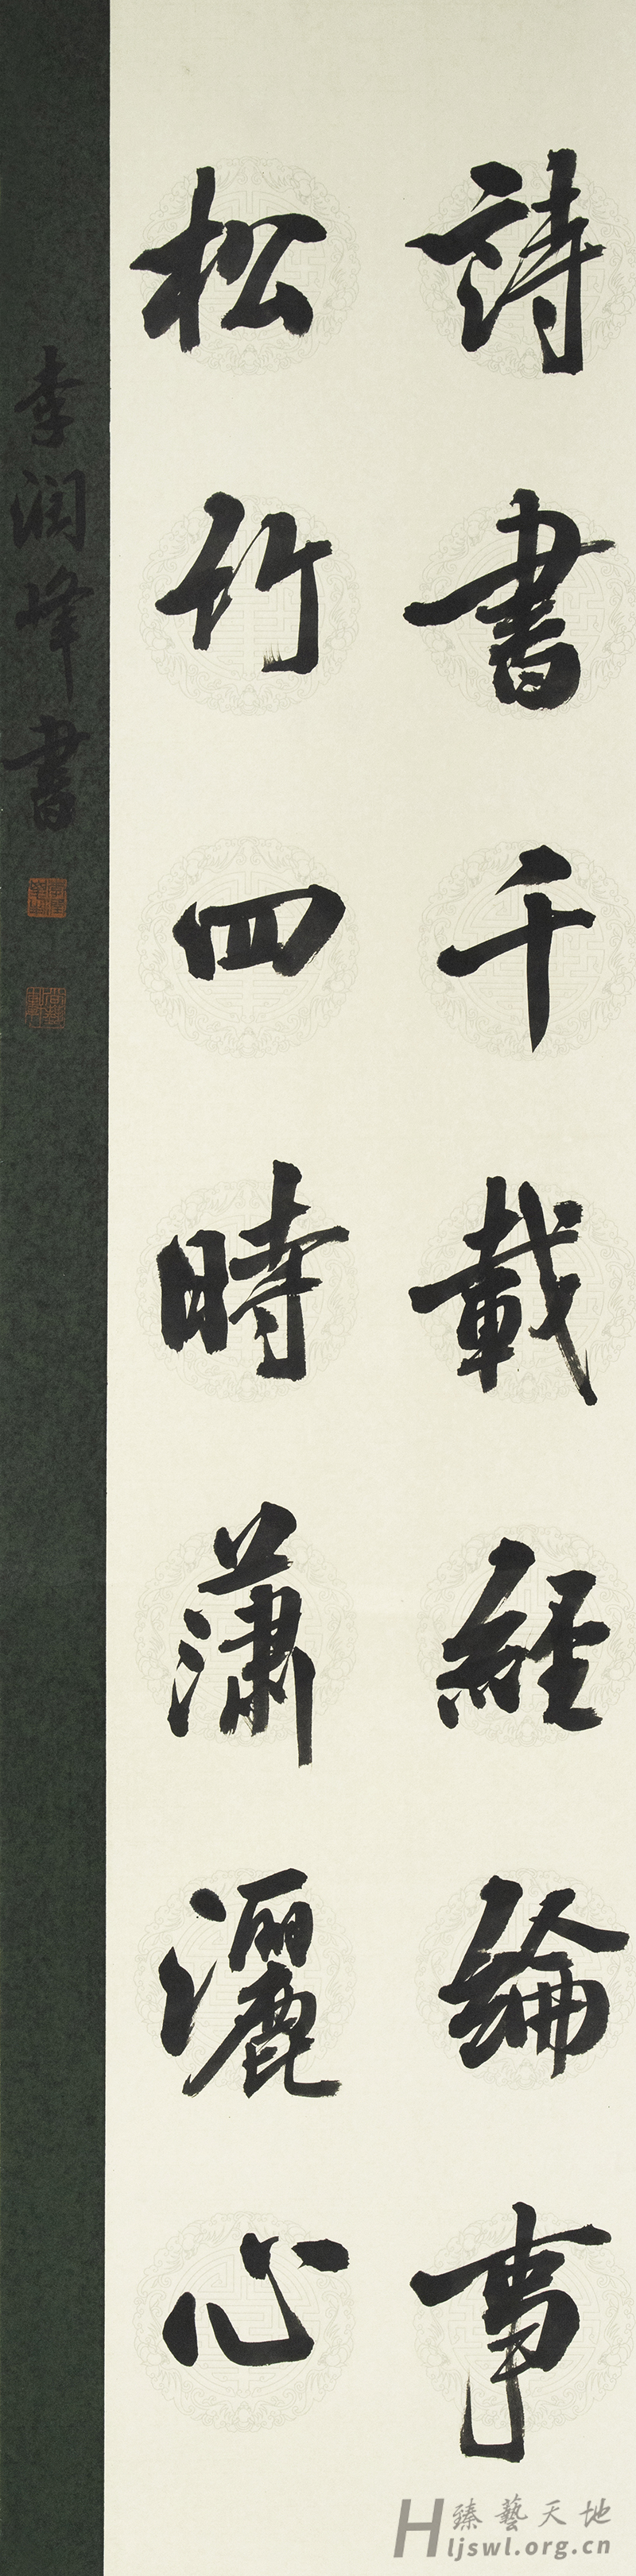 詩書千載經綸事
松竹四時瀟灑心
李润峰書
臻藝天地
Hljswl.org.cn